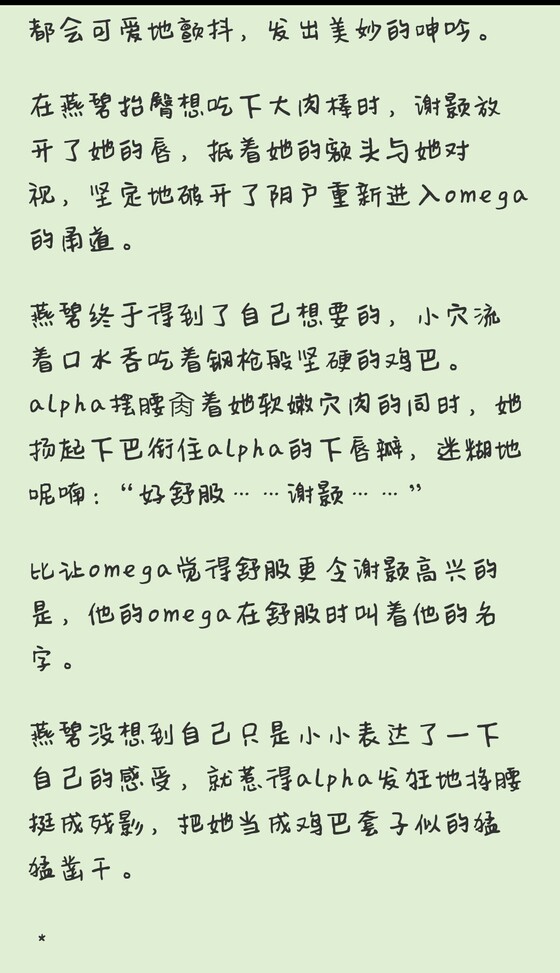 都会可爱地颤抖，发出美妙的呻吟。
在燕碧抬臀想吃下大肉棒时，谢颢放
开了她的唇，抵着她的额头与她对
视，坚定地破开了阴户重新进入omega
的甬道。
燕碧终于得到了自己想要的，小穴流
着口水吞吃着钢枪般坚硬的鸡巴。
alpha摆腰肏着她软嫩穴肉的同时，她
扬起下巴衔住alpha的下唇瓣，迷糊地
呢喃：“好舒服……谢颢……”
比让omega觉得舒服更令谢颢高兴的
是，他的omega在舒服时叫着他的名
字。
燕碧没想到自己只是小小表达了一下
自己的感受，就惹得alpha发狂地将腰
挺成残影，把她当成鸡巴套子似的猛
猛凿干。
*